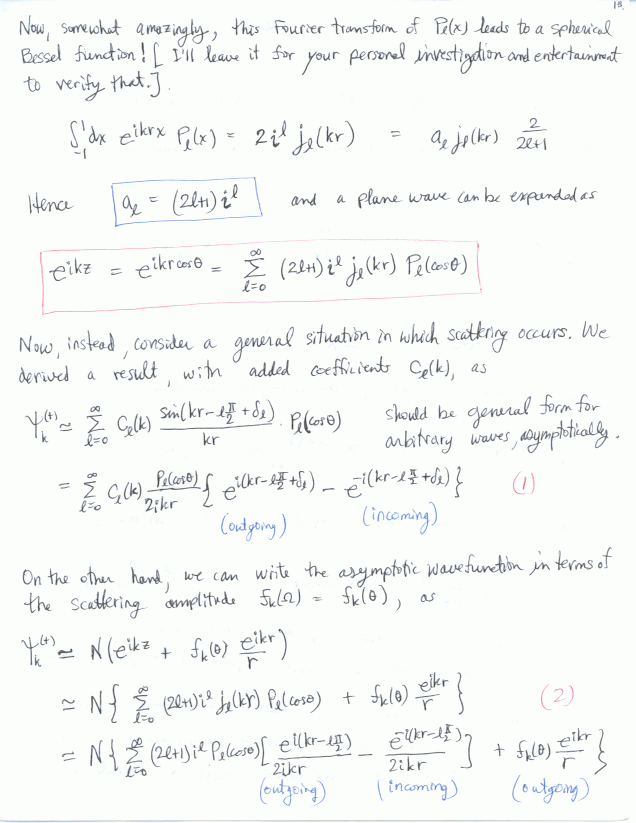 13.
Now, somewhat amazingly, this Fourier transform of Pℓ(x) leads to a spherical
Bessel function! [ I'll leave it for your personal investigation and entertainment
to verify that.]
∫₋₁¹ dx e^{ikrx} Pℓ(x) = 2i^ℓ jℓ(kr) = aℓ jℓ(kr) 2/(2ℓ+1)
Hence aℓ = (2ℓ+1) i^ℓ and a plane wave can be expanded as
e^{ikz} = e^{ikr cosθ} = Σ_{ℓ=0}^{∞} (2ℓ+1) i^ℓ jℓ(kr) Pℓ(cosθ)
Now, instead, consider a general situation in which scattering occurs. We
derived a result, with added coefficients Cℓ(k), as
ψ_k^{(+)} ≃ Σ_{ℓ=0}^{∞} Cℓ(k) sin(kr-ℓπ/2+δℓ)/kr · Pℓ(cosθ) should be general form for
arbitrary waves, asymptotically.
= Σ_{ℓ=0}^{∞} Cℓ(k) Pℓ(cosθ)/2ikr { e^{i(kr-ℓπ/2+δℓ)} - e^{-i(kr-ℓπ/2+δℓ)} } (1)
(outgoing) (incoming)
On the other hand, we can write the asymptotic wavefunction in terms of
the scattering amplitude f_k(Ω) = f_k(θ), as
ψ_k^{(+)} ≃ N(e^{ikz} + f_k(θ) e^{ikr}/r)
≃ N{ Σ_{ℓ=0}^{∞} (2ℓ+1) i^ℓ jℓ(kr) Pℓ(cosθ) + f_k(θ) e^{ikr}/r } (2)
= N{ Σ_{ℓ=0}^{∞} (2ℓ+1) i^ℓ Pℓ(cosθ) [ e^{i(kr-ℓπ/2)}/2ikr - e^{-i(kr-ℓπ/2)}/2ikr ] + f_k(θ) e^{ikr}/r }
(outgoing) (incoming) (outgoing)